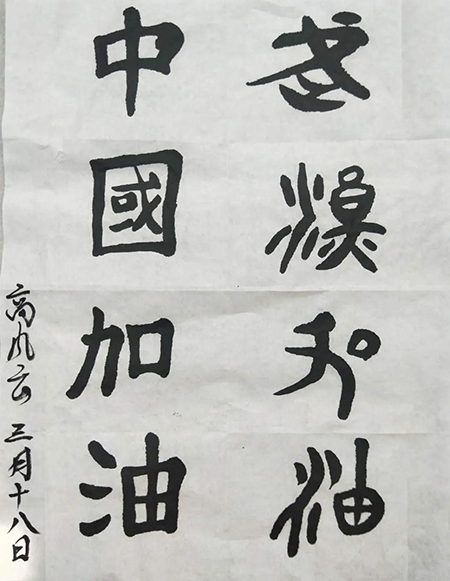 武漢加油
中國加油
高风云 三月十八日